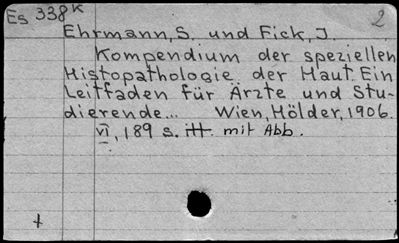 Es 338K
2
Ehrmann, S. und Fick, J.
Kompendium der speziellen
Histopathologie der Haut. Ein
Leitfaden für Ärzte und Stu-
dierende... Wien, Hölder, 1906.
VI, 189 S. mit Abb.